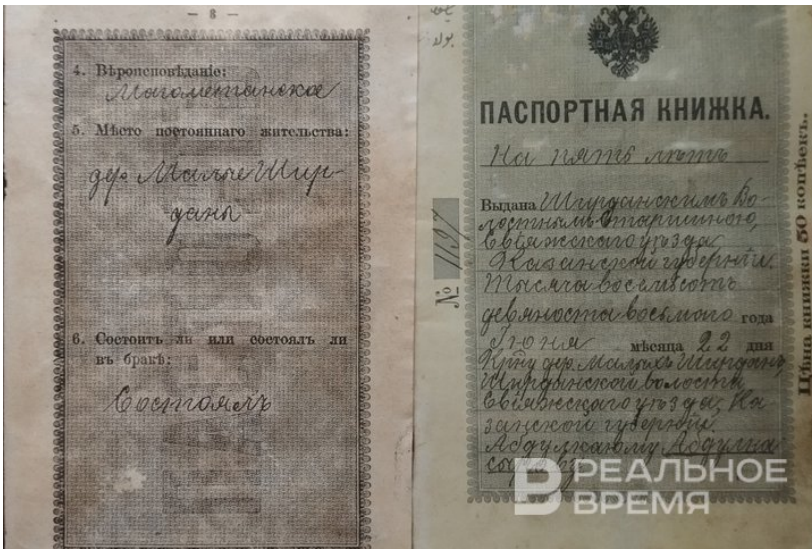 — 8 —
4. Вѣроисповѣданіе:
Магометанское
5. Мѣсто постояннаго жительства:
дер. Малые Шир-
даны
6. Состоитъ ли или состоялъ ли
въ бракѣ:
Состоялъ
ПАСПОРТНАЯ КНИЖКА.
На пять лѣтъ
Выдана Ширданскимъ Во-
лостнымъ Старшиною,
Свіяжскаго уѣзда,
Казанской губерніи.
Тысяча восемьсотъ
девяноста восьмаго года
Іюня мѣсяца 22 дня
Крну дер. Малыхъ Ширданъ,
Ширданской волости,
Свіяжскаго уѣзда, Ка-
занской губерніи.
Абдулкаюму Абдулка
№ 1197
Цѣна книжки 50 копѣекъ.
РЕАЛЬНОЕ
ВРЕМЯ